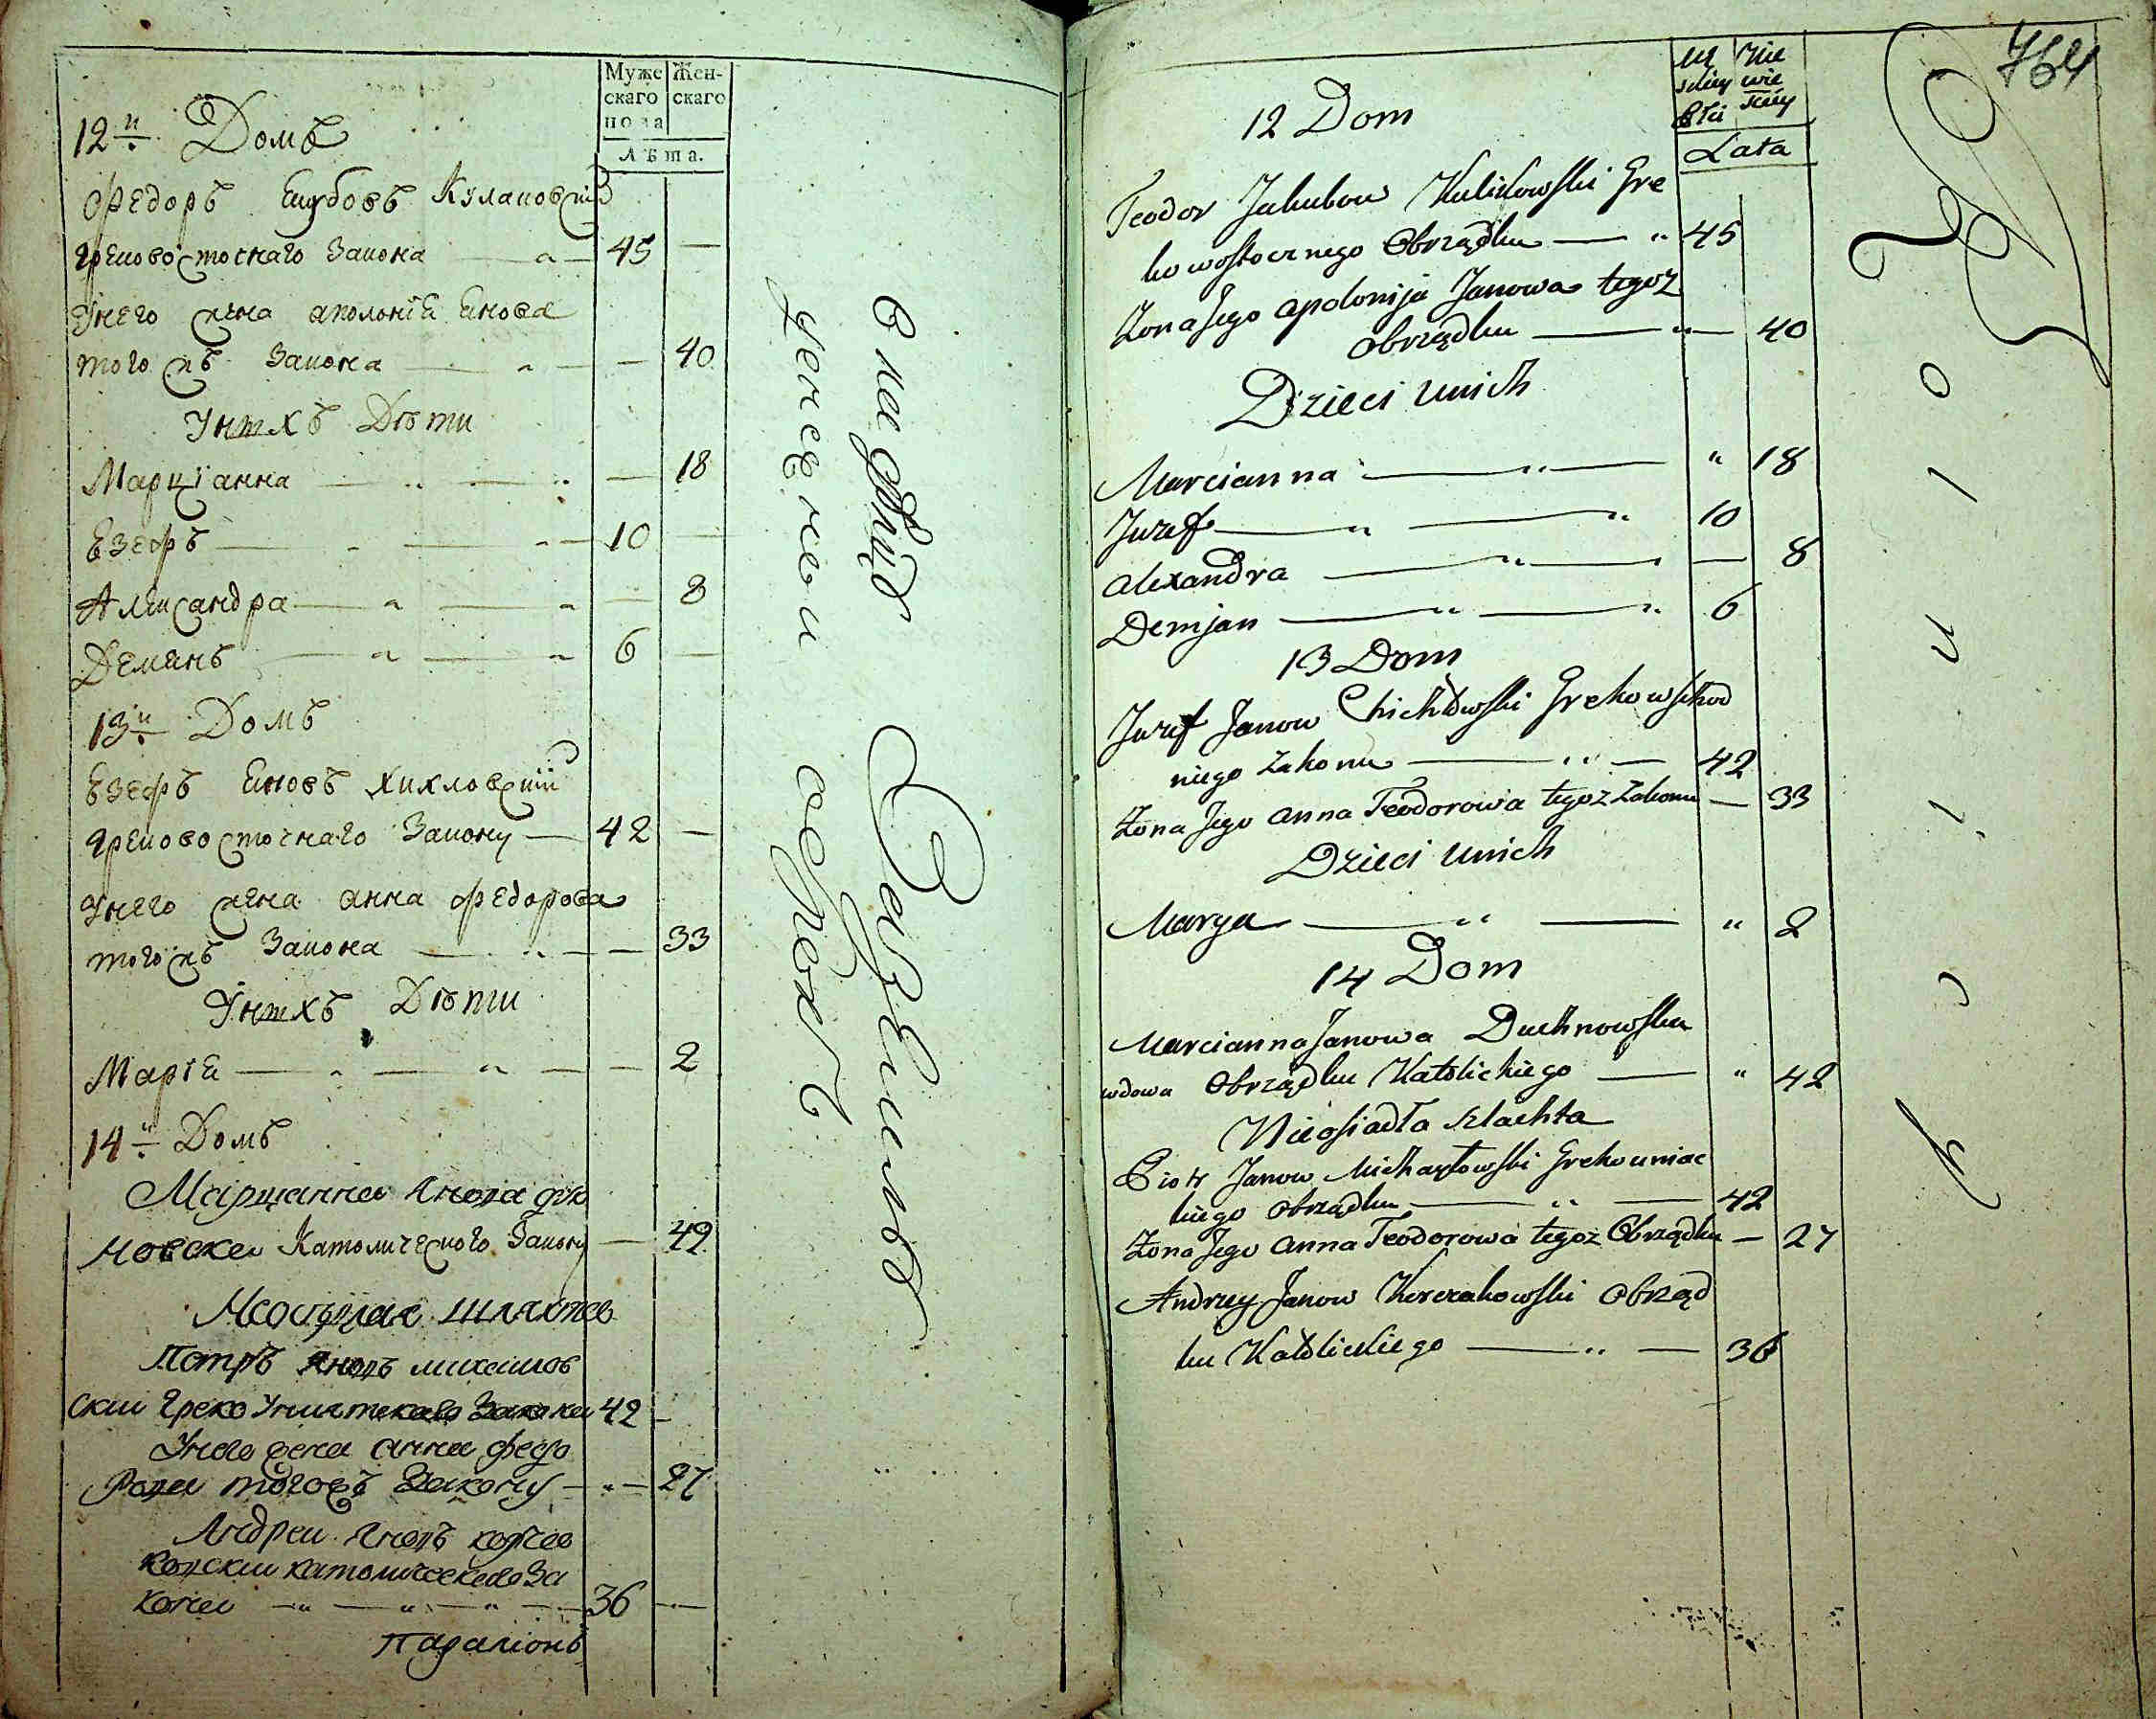 Муже Жен-
скаго скаго
пола
Лѣта.
12й Домъ
Федоръ Якубовъ Куликовскій
Грековосточнаго Закона 45 —
Унего жена аполонія Янова
тогожъ Закона — 40
Унихъ Дѣти
Марціанна — 18
Езефъ 10 —
Александра — 8
Демянъ 6 —
13й Домъ
Езефъ Яновъ Хихловскій
Грековосточнаго Закону — 42 —
Унего жена анна Федорова
тогожъ Закона — 33
Унихъ Дѣти
Марія — 2
14й Домъ
Марцианна Янова дух
новская Католического Закону — 42
Неоседлая шляхта
Петръ Яновъ михайлов
ский Греко Униатскаго Закона 42 —
Унего жена анна федо
рова тогожъ Закону — 27
Андрей Яновъ корча
ковский католическаго За
кона 36 —
764
Mę Nie
skiey wie
płci skiey
Lata
12 Dom
Teodor Jakubow Kulikowski Gre
kowostocznego Obrządku — " 45
Zona Jego apolonija Janowa tegoz
obrządku — " — 40
Dzieci unich
Marcianna — " — " 18
Juzef — " — " 10
alexandra — " — — 8
Demjan — " — " 6
13 Dom
Juzef Janow Chichłowski Grekowschod
niego Zakonu — " — 42
Zona Jego anna Teodorowa tegoz Zakonu — 33
Dzieci unich
Marya — " — " 2
14 Dom
Marcianna Janowa Duchnowska
wdowa Obrządku Katolickiego — " 42
Nieosiadła szlachta
Piotr Janow Michayłowski Grekouniac
kiego Obrządku — " — 42
Zona Jego anna Teodorowa tegoz Obrządku — 27
Andrzey Janow Korczakowski Obrząd
ku Katolickiego — " — 36